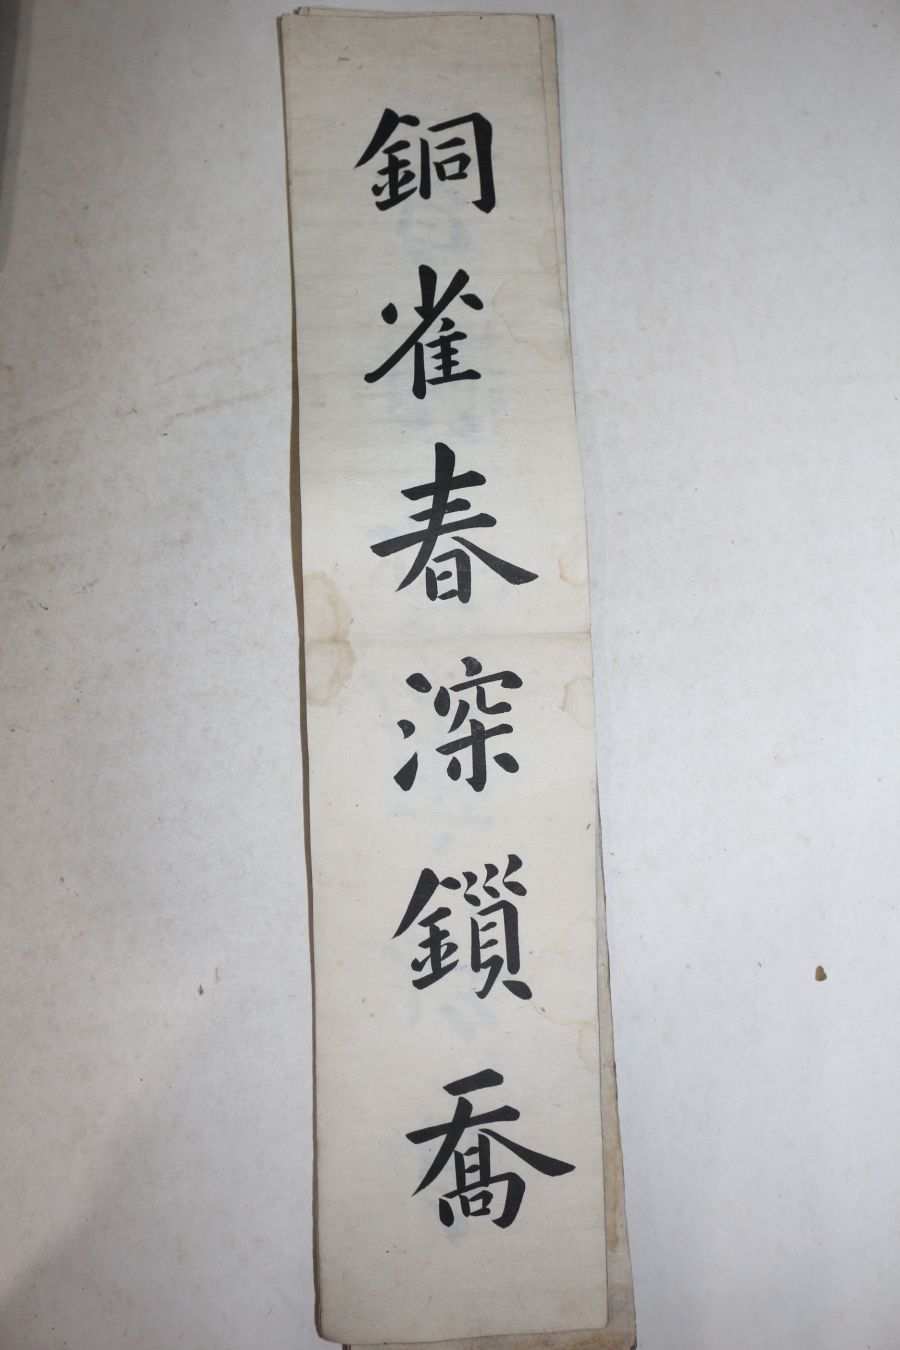 銅雀春深鎖喬